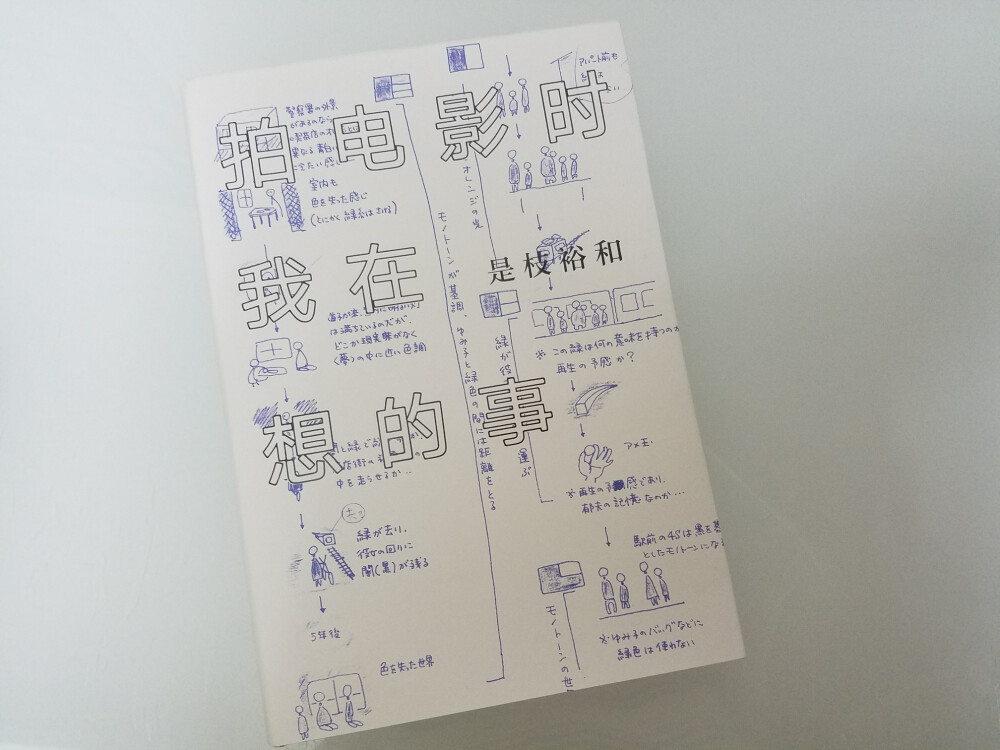 拍电影时
我在
想的事
是枝裕和
警察署の外景
があるのなら
室内も
色を失った感じ
(とにかく緑系はさける)
は満ちているのだが、
どこか現実感がなく
(夢)の中に近い色調
中を走らせるか…
去?
緑が去り、
彼女の回りに
闇(黒)が残る
5年後
色を失った世界
モノトーンが基調。ゆみ子と緑色の間には距離をとる
オレンジの光
アパート前も
緑は
ない
※この緑は何の意味を持つのか
再生の予感か?
緑が役
運ぶ
アメ玉・
※再生の予感であり、
郁夫の記憶なのか…
駅前の4Sは黒を基
としたモノトーンになる
※ゆみ子のバッグなどに
緑色は使わない
モノトーンの世